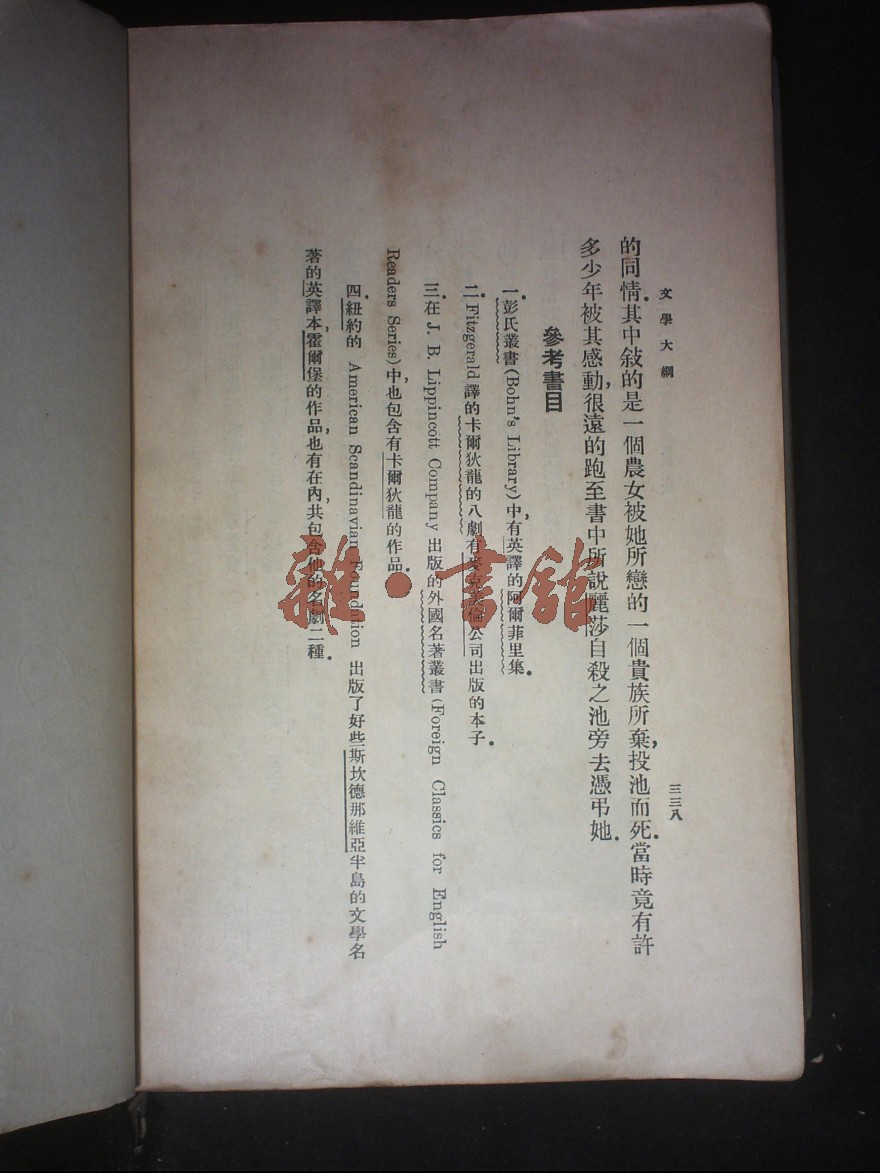 文學大綱
三三八
的同情。其中敍的是一個農女被她所戀的一個貴族所棄，投池而死。當時竟有許
多少年被其感動，很遠的跑至書中所說麗莎自殺之池旁去憑弔她。
參考書目
一。彭氏叢書(Bohn's Library)中，有英譯的阿爾菲里集。
二。Fitzgerald 譯的卡爾狄龍的八劇有麥克美倫公司出版的本子。
三。在 J. B. Lippincott Company 出版的外國名著叢書(Foreign Classics for English
Readers Series)中，也包含有卡爾狄龍的作品。
四。紐約的 American Scandinavian Foundation 出版了好些斯坎德那維亞半島的文學名
著的英譯本，霍爾堡的作品，也有在內，共包含他的名劇二種。
雜·書館